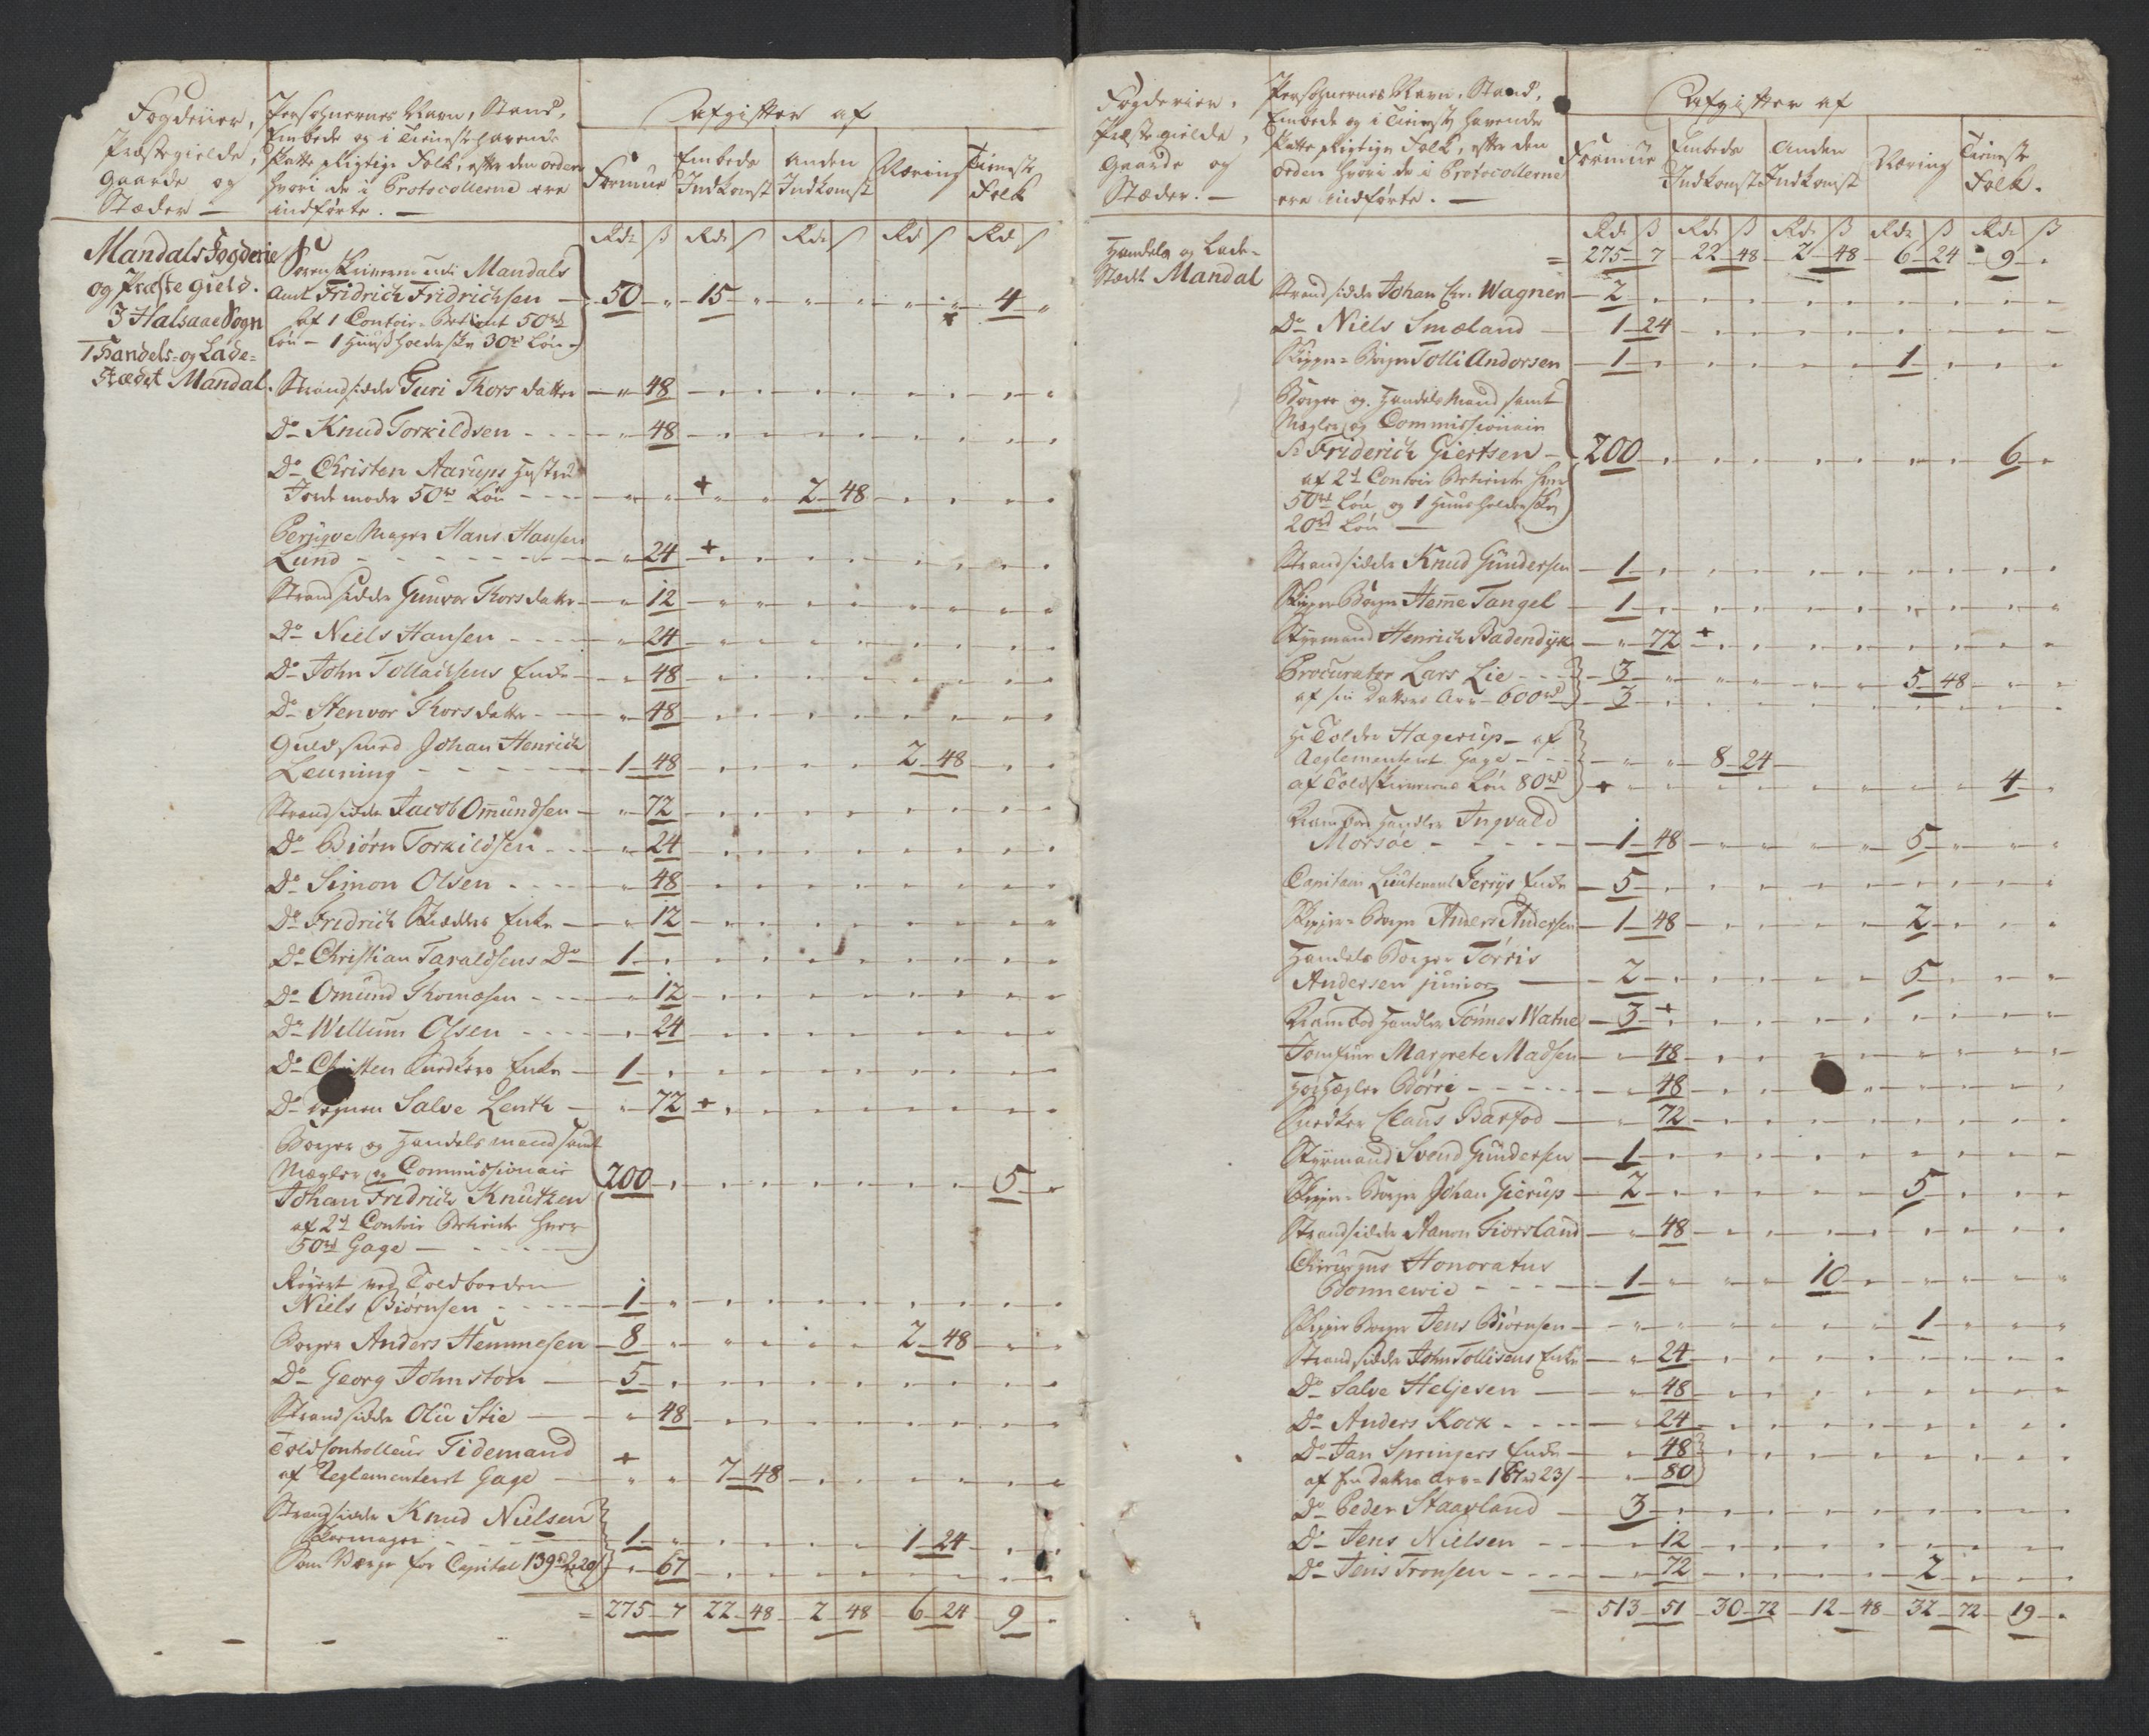 Fogderier,
Præstegielde,
Gaarde og
Stæder —
Persohnernes Navn, Stand,
Embede og i Tieneste havende
skatte pligtige Folk, efter den orden
hvori de i Protocollerne ere
indførte. —
Afgifter af
Formue
Embeds Indkomst
Anden Indkomst
Næring
Tieneste Folk
Rdr ß Rdr ß Rdr ß Rd ß Rd ß
Mandals Fogderie
og Præstegield.
I Halsaae Sogn
I Handels- og Lade-
Stædet Mandal.
Sorenskriveren udi Mandals
Amt Fridrich Fridrichsen — 50 " 15 " " " " " 4 "
af 1 Contoir-Betient 50rd
Løn — 1 Huusholderske 30r Løn
Strandsidder Guri Thorsdatter — " 48
Do Knud Torkildsen — " 48
Do Christen Aarups Hustrue
Jordemoder 50rd Løn — " " + " " 2 48
Perruqve Mager Hans Hansen
Lund — " 24 +
Strandsidder Gunvor Thorsdatter — " 12
Do Niels Hansen — " 24
Do John Tollachsens Enke — " 48
Do Stenvor Thorsdatter — " 48
Guldsmed Johan Henrich
Leuning — 1 48 " " " " 2 48
Strandsidder Jacob Omundsen — " 72
Do Biørn Torkildsen — " 24
Do Simon Olsen — " 48
Do Fredrich Enke — " 12
Do Christian Taraldsens Do — 1 "
Do Omund Thomæsen — " 12
Do Willum Olsen — " 24
Do Christen Enke — 1 "
Do Salve Lenth — " 72 +
Borger og Handelsmand samt
Mægler og Commissionair
Johan Fredrich Knutzen 200 " " " " " " " 5 "
af 2d Contoir Betiente hver
50rd Gage —
Røgert ved Toldboeden
Niels Biørnsen — 1 "
Borger Anders Hemmesen — 8 " " " " " 2 48
Do Georg Johnston — 5 "
Strandsidder Olu Stie — " 48
Toldcontrolleur Tidemand +
af Reglementeret Gage — " " 7 48
Strandsidder Knud Nielsen
Skoemager — 1 " " " " " 1 24
Som Værge for Capital 139rd 2 20ß — " 67
= 275 7 22 48 2 48 6 24 9 "
Fogderier,
Præstegielde,
Gaarde og
Stæder. —
Persohnernes Navn, Stand,
Embede og i Tieneste havende
skatte pligtige Folk, efter den
orden hvori de i Protocollerne
ere indførte. —
Afgifter af
Formue
Embeds Indkomst
Anden Indkomst
Næring
Tieneste Folk.
Rdr ß Rdr ß Rdr ß Rdr ß Rdr ß
Handels og Lade-
Stædt Mandal
= 275 7 22 48 2 48 6 24 9 "
Strandsidder Johan Chr. Wagner — 2 "
Do Niels Smæland — 1 24
Skipper-Borger Tolli Andorsen — 1 " " " " " 1 "
Borger og Handels Mand samt
Mægler og Commissionair
Sr Friderich Giertsen — 200 " " " " " " " 6 "
af 2d Contoir Betiente hver
50rd Løn og 1 Huusholderske
20rd Løn —
Strandsidder Knud Gundersen — 1 "
Skipper Borger Hemme Tangel — 1 "
Styrmand Henrich Badendyk — " 72 +
Procurator Lars Lie — 3 " " " " " 5 48
af sin Datters Arv — 600rd — 3 "
Hr Tolder Hagerup — af
Reglementeret Gage — " " 8 24
af Toldskriverens Løn 80rd + " " " " " " " 4 "
Krambod Handler Ingvald
Morsøe — 1 48 " " " " 5 "
Capitain Lieutenant Jerrys Enke — 5 "
Skipper-Borger Anders Andersen — 1 48 " " " " 2 "
Handels Borger Torris
Andersen junior — 2 " " " " " 5 "
Krambod Handler Tønnes Watne — 3 + "
Jomfrue Margrete Madsen — " 48
Børre — " 48
Snedker Claus Barfod — " 72
Styrmand Svend Gundersen — 1 "
Skipper-Borger Johan Gierup — 2 " " " " " 5 "
Strandsidder Aanon Fiorsland — " 48
Chirurgus Honoratus
Bonnevie — 1 " " " 10 "
Skipper Borger Jens Biørnsen — " " " " " " 1 "
Strandsidder John Tollisens Enke — " 24
Do Salve Heljesen — " 48
Do Anders Kock — " 24
Do Jan Springers Enke — " 48
af sin Datters Arv = 167rd 23ß — " 80
Do Peder Staarland — 3 "
Do Jens Nielsen — " 12
Do Jens Tronsen — " 72 " " " " 2 "
= 513 51 30 72 12 48 32 72 19 "